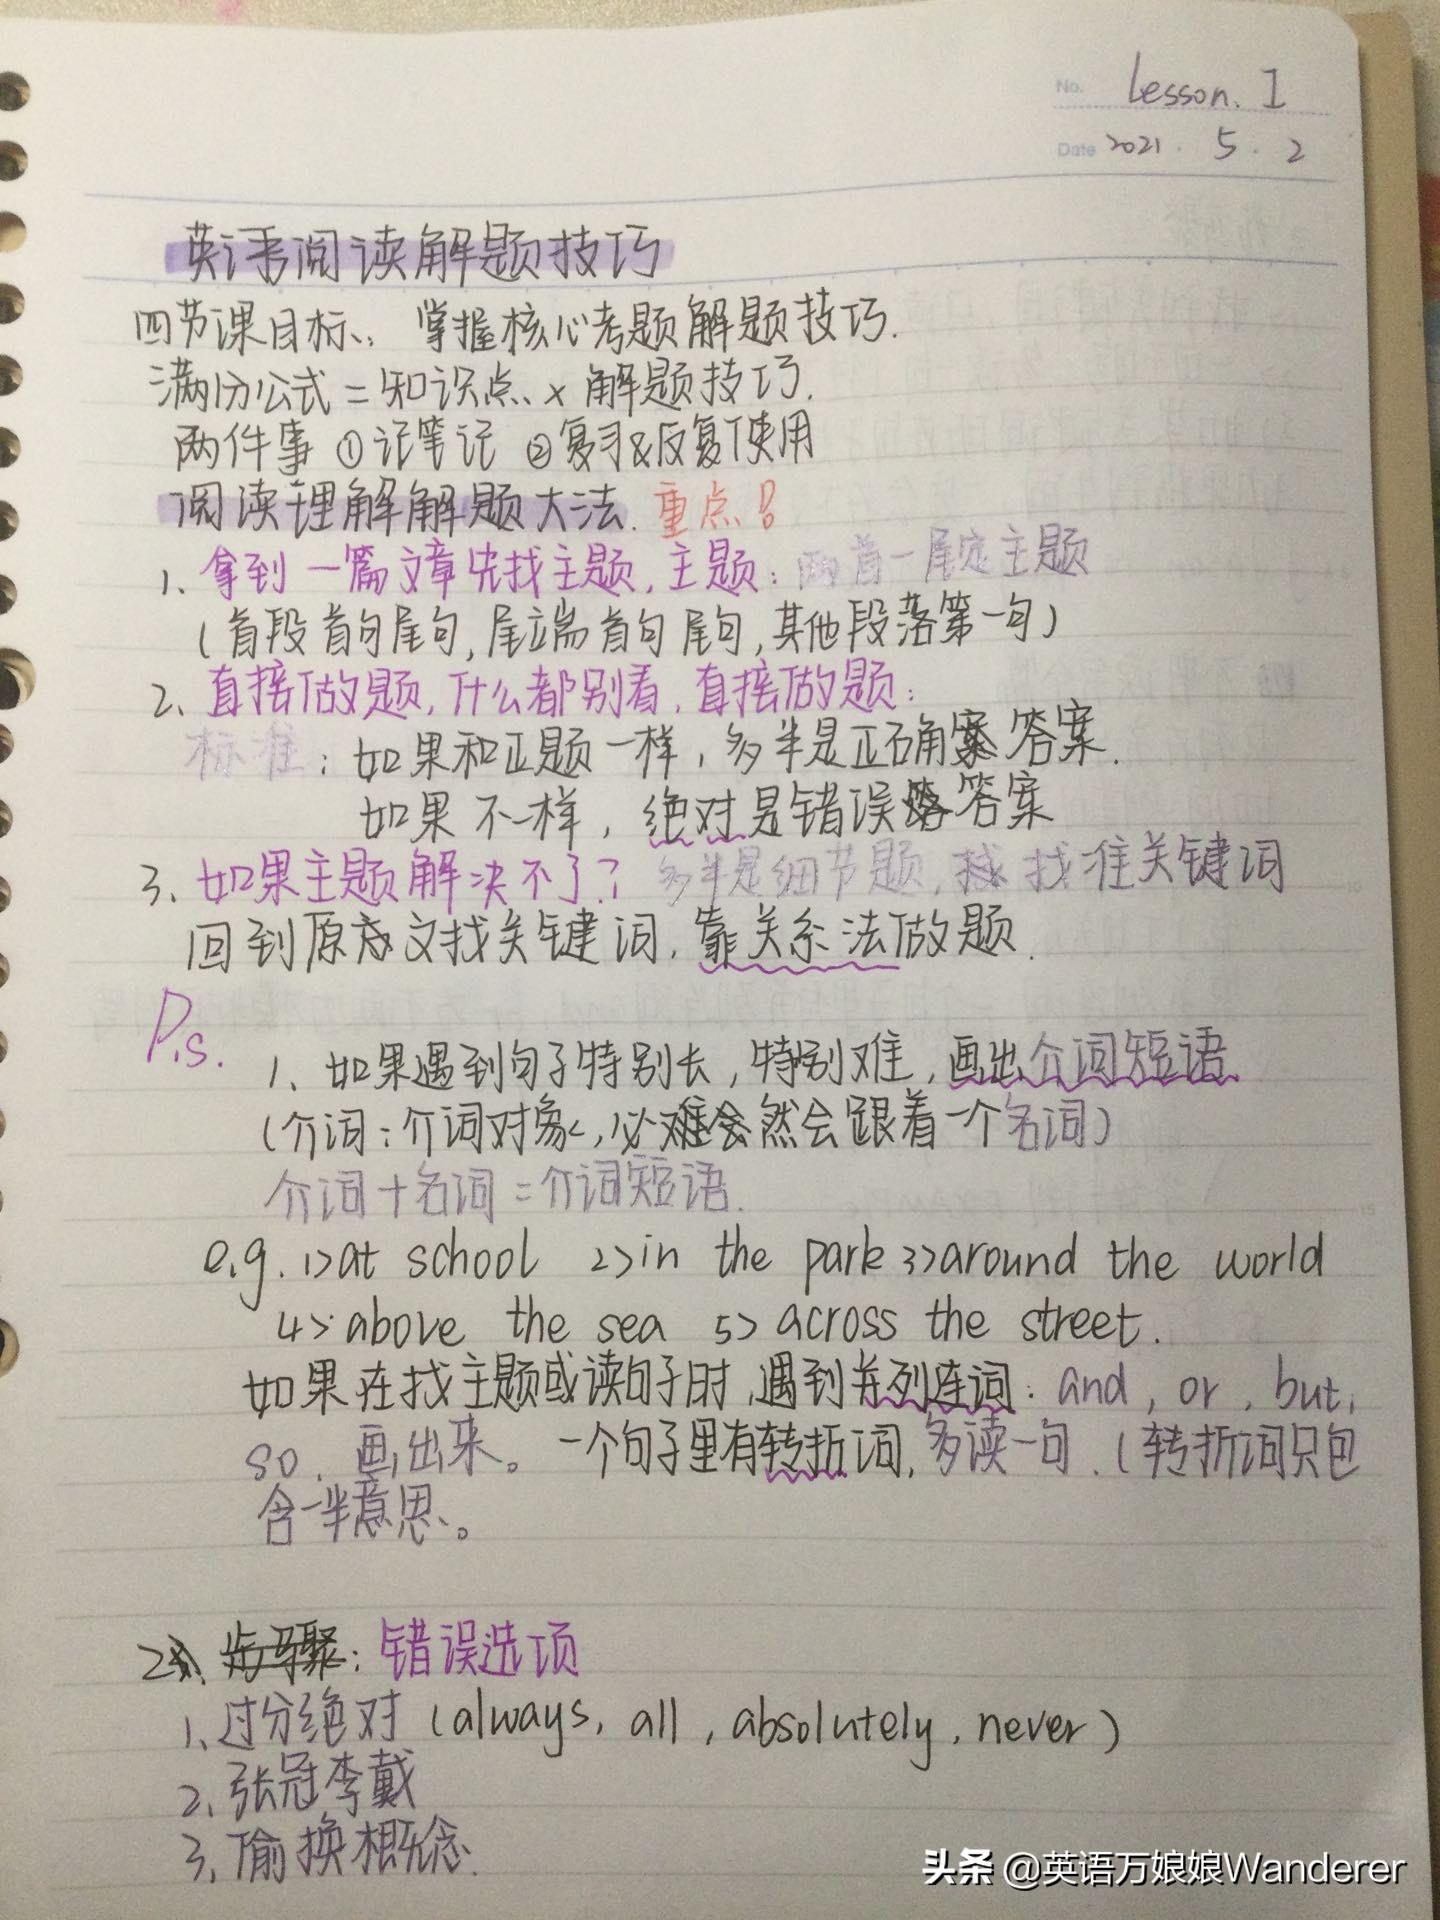 No. Lesson. I
Date 2021 . 5 . 2
英语阅读解题技巧
四节课目标：掌握核心考题解题技巧.
满分公式=知识点×解题技巧.
两件事 ①记笔记 ②复习&反复使用
阅读理解解题大法. 重点！
1、拿到一篇文章先找主题，主题：两首一尾定主题
（首段首句尾句，尾端首句尾句，其他段落第一句）
2、直接做题，什么都别看，直接做题：
标准：如果和正题一样，多半是正确答案.
如果不一样，绝对是错误答案
3、如果主题解决不了？多半是细节题，找准关键词
回到原文找关键词，靠关系法做题.
P.s.
1、如果遇到句子特别长，特别难，画出介词短语
（介词：介词对象，必然会跟着一个名词）
介词+名词=介词短语.
e.g. 1>at school 2>in the park 3>around the world
4>above the sea 5>across the street.
如果在找主题或读句子时，遇到并列连词：and，or，but，
so，画出来。一个句子里有转折词，多读一句.（转折词只包
含一半意思。
2、步骤：错误选项
1、过分绝对（always，all，absolutely，never）
2、张冠李戴
3、偷换概念.
头条 @英语万娘娘Wanderer